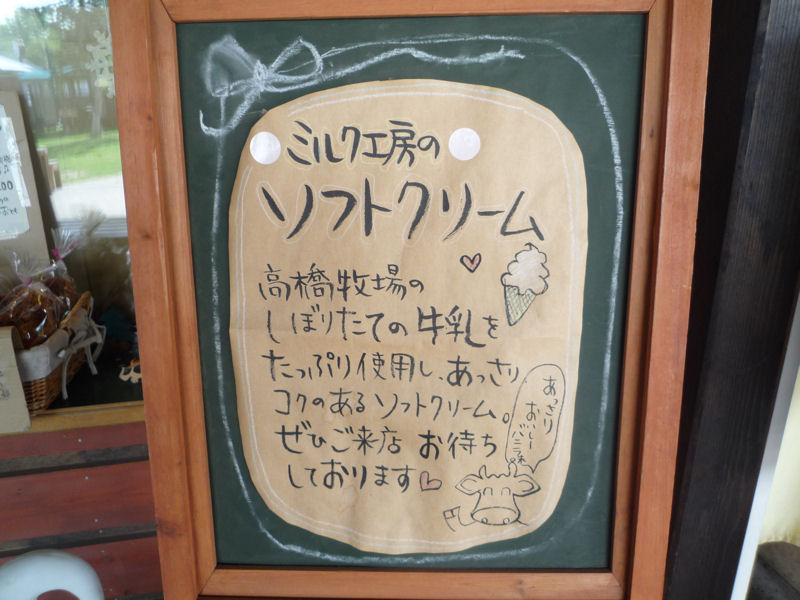 ミルク工房の
ソフトクリーム
高橋牧場の
しぼりたての牛乳を
たっぷり使用し、あっさり
コクのあるソフトクリーム。
ぜひご来店 お待ち
しております
あっさり
おいしー
バニラ味